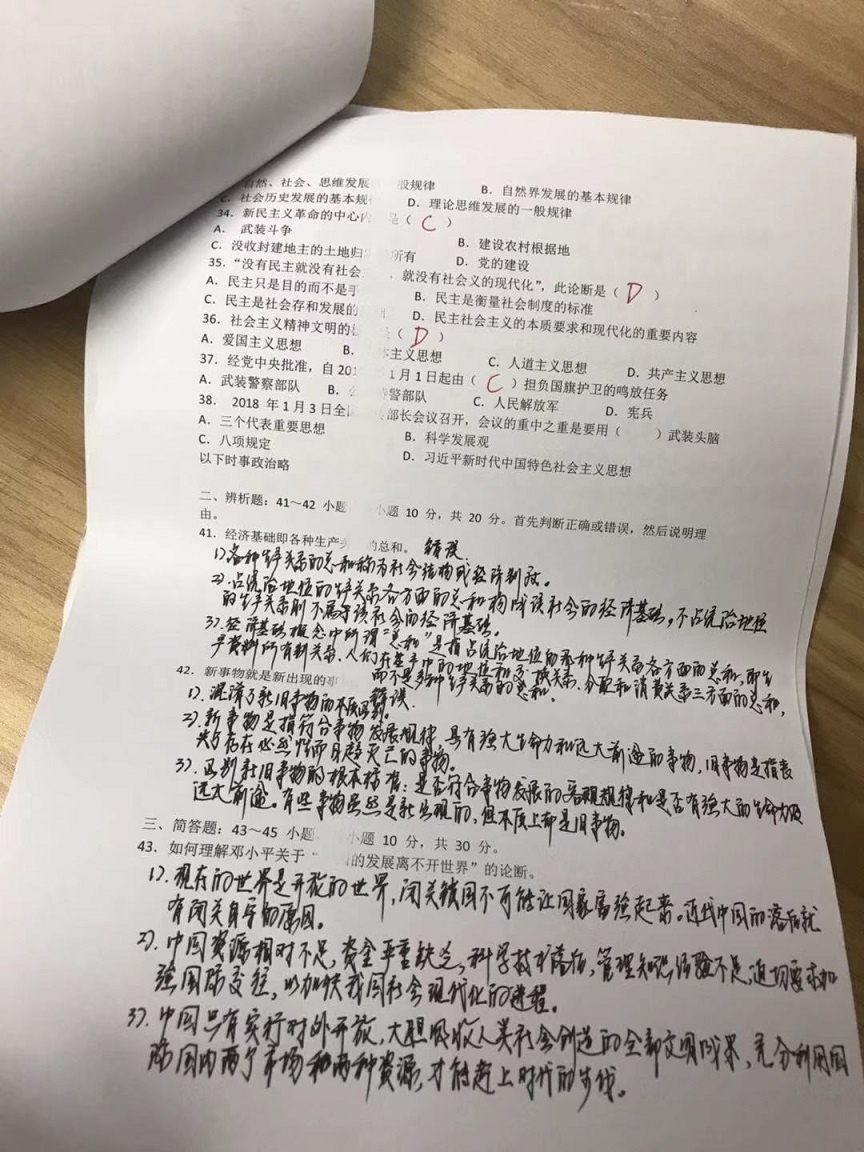 自然、社会、思维发展 般规律 B. 自然界发展的基本规律
C. 社会历史发展的基本规 D. 理论思维发展的一般规律
34. 新民主义革命的中心内 是（ C ）
A. 武装斗争 B. 建设农村根据地
C. 没收封建地主的土地归 所有 D. 党的建设
35. “没有民主就没有社会 ，就没有社会义的现代化”，此论断是（ D ）
A. 民主只是目的而不是手 B. 民主是衡量社会制度的标准
C. 民主是社会存和发展的 D. 民主社会主义的本质要求和现代化的重要内容
36. 社会主义精神文明的 （ D ）
A. 爱国主义思想 B. 主义思想 C. 人道主义思想 D. 共产主义思想
37. 经党中央批准，自 201 1 月 1 日起由（ C ）担负国旗护卫的鸣放任务
A. 武装警察部队 B. 警部队 C. 人民解放军 D. 宪兵
38. 2018 年 1 月 3 日全 部长会议召开，会议的重中之重是要用（ ）武装头脑
A. 三个代表重要思想 B. 科学发展观
C. 八项规定 D. 习近平新时代中国特色社会主义思想
以下时事政治略
二、辨析题：41～42 小题 小题 10 分，共 20 分。首先判断正确或错误，然后说明理
由。
41. 经济基础即各种生产 的总和。 错误.
1).各种生产关系的总和称为社会结构或经济制度。
2).占统治地位的生产关系各方面的总和构成该社会的经济基础，不占统治地位
的生产关系则不属于该社会的经济基础。
3).经济基础概念中所谓“总和”是指占统治地位的那种生产关系各方面的总和，即生
产资料所有制关系、人们在生产中的地位和交换关系、分配和消费关系三方面的总和，
而不是多种生产关系的总和.
42. 新事物就是新出现的事 错误.
1).混淆了新旧事物的本质区别。
2).新事物是指符合事物发展规律，具有强大生命力和远大前途的事物，旧事物是指丧
失了存在必然性而日趋灭亡的事物。
3).区别新旧事物的根本标准：是否符合事物发展的客观规律和是否有强大的生命力及
远大前途。有些事物虽然是新出现的，但本质上却是旧事物。
三、简答题：43～45 小题 小题 10 分，共 30 分。
43. 如何理解邓小平关于“ 的发展离不开世界”的论断。
1).现在的世界是开放的世界，闭关锁国不可能让国家富强起来。近代中国的落后就
有闭关自守的原因。
2).中国资源相对不足，资金严重缺乏，科学技术落后，管理知识，经验不足，迫切要求加
强国际交往，以加快我国社会现代化的进程。
3).中国只有实行对外开放，大胆吸收人类社会创造的全部文明成果，充分利用国
际国内两个市场和两种资源，才能赶上时代的步伐。